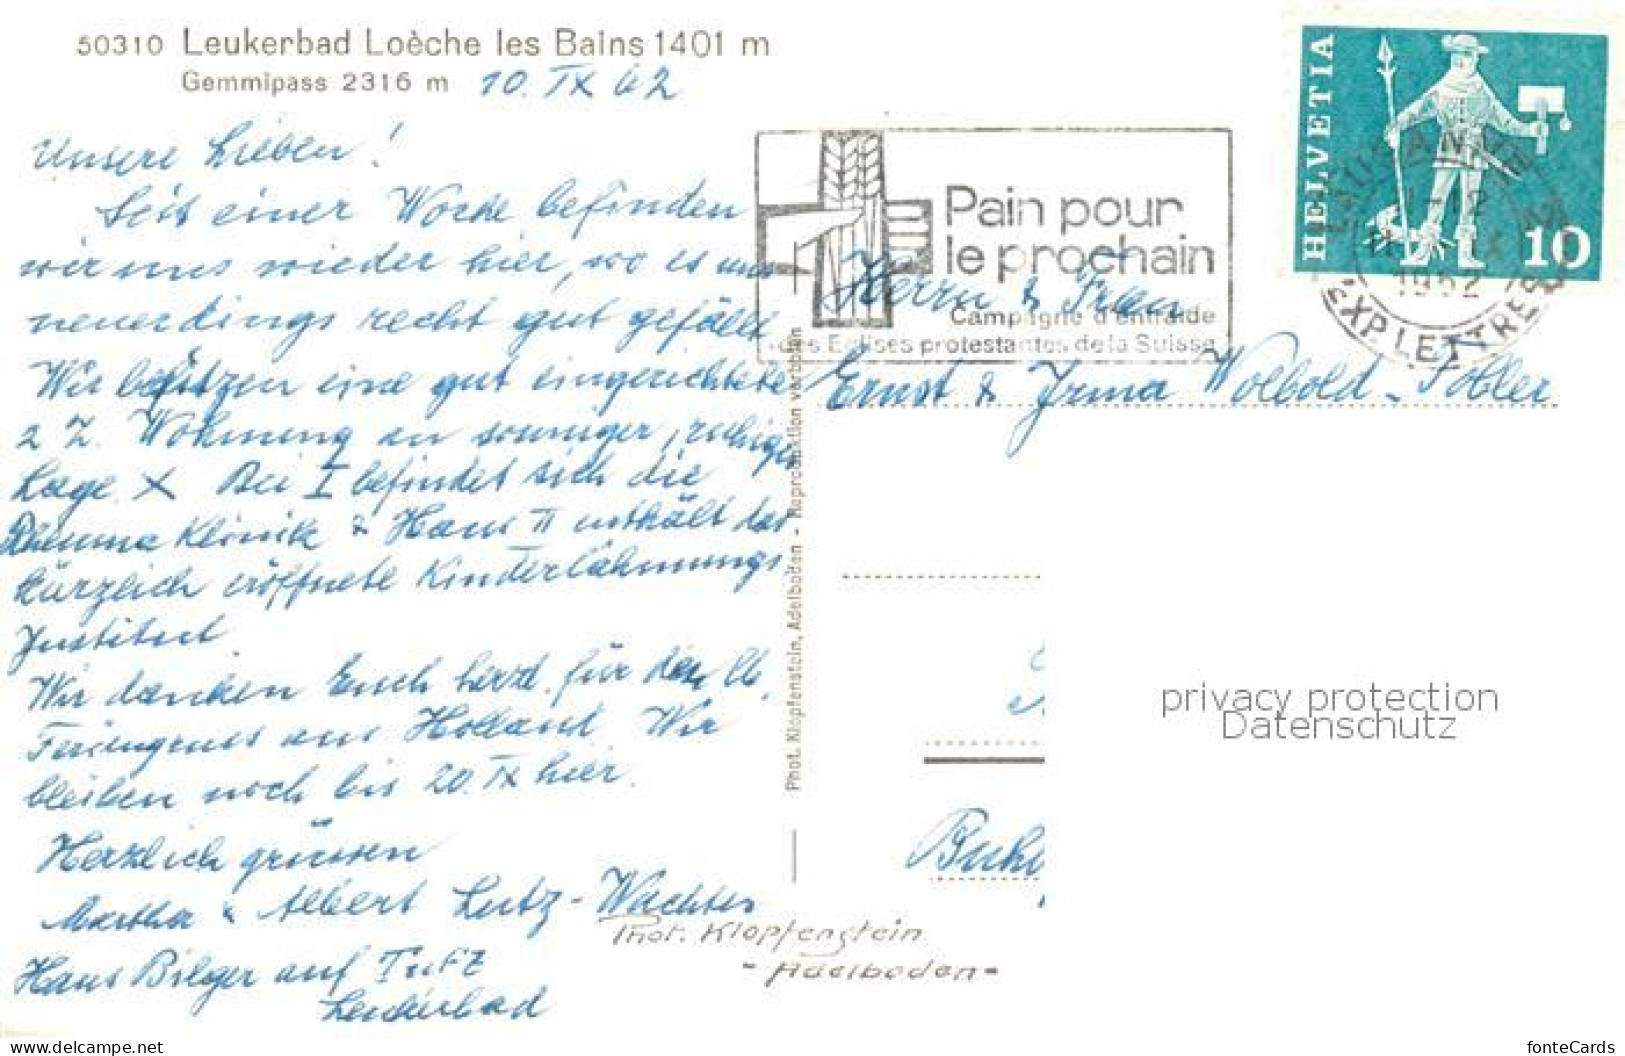 50310 Leukerbad Loèche les Bains 1401 m
Gemmipass 2316 m 10. IX 62
Unsere Lieben!
Seit einer Woche befinden
wir uns wieder hier, wo es uns
neuerdings recht gut gefällt
Wir besitzen eine gut eingerichtete
2 Z. Wohnung an sonniger, ruhiger
Lage X Bei I befindet sich die
Rheuma Klinik & Haus II enthält das
kürzlich eröffnete Kinderlähmungs
Institut
Wir danken Euch herzl. für den lb.
Feriengruss aus Holland Wir
bleiben noch bis 20. IX hier.
Herzlich grüssen
Martha & Albert Lutz-Wachter
Hans Bilger auf
Leukerbad
Phot. Klopfenstein, Adelboden - Reproduktion verboten
Phot. Klopfenstein
- Adelboden -
Pain pour
le prochain
Campagne d'entraide
des Eglises protestantes de la Suisse
HELVETIA
10
LAUSANNE
1962
EXP. LETTRES
Herrn & Frau
Ernst & Irma Wolbold-Tobler
privacy protection
Datenschutz
https://www.delcampe.net
fonteCards